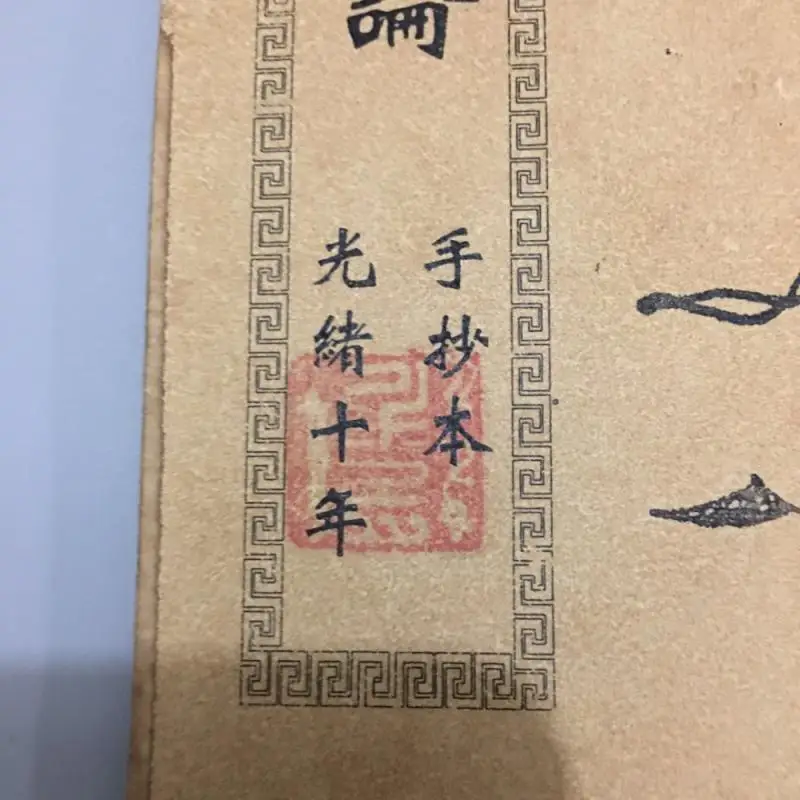 論
手抄本
光緒十年